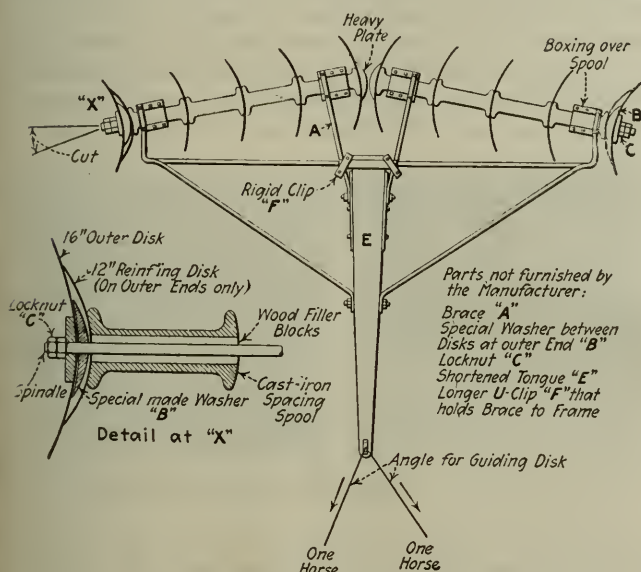 Heavy
Plate
Boxing over
Spool
"X"
B
A
C
Cut
Rigid Clip
"F"
E
16" Outer Disk
12" Reinf'ing Disk
(On Outer Ends only)
Locknut
"C"
Wood Filler
Blocks
Spindle
Special made Washer
"B"
Cast-iron
Spacing
Spool
Detail at "X"
Parts not furnished by
the Manufacturer:
Brace "A"
Special Washer between
Disks at outer End "B"
Locknut "C"
Shortened Tongue "E"
Longer U-Clip "F" that
holds Brace to Frame
Angle for Guiding Disk
One
Horse
One
Horse